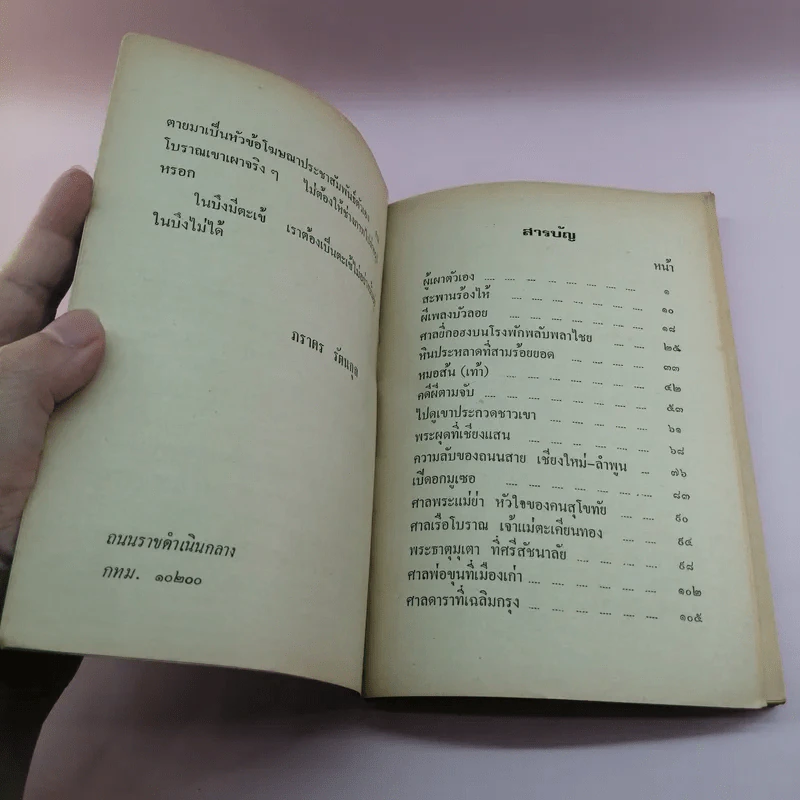 ตายมาเป็นหัวข้อโฆษณาประชาสัมพันธ์ตัวเอง
โบราณเขาเผาจริง ๆ ไม่ต้องให้ช่าง
หรอก
ในบึงมีตะเข้ เราต้องเป็นตะเข้
ในบึงไม่ได้
ภราดร รัตนกุล
ถนนราชดำเนินกลาง
กทม. ๑๐๒๐๐
สารบัญ
หน้า
ผู้เผาตัวเอง .... .... .... .... .... ๑
สะพานร้องไห้ .... .... .... .... ๑๐
ผีเพลงบัวลอย .... .... .... .... ๑๘
ศาลยี่กอฮงบนโรงพักพลับพลาไชย ๒๕
หินประหลาดที่สามร้อยยอด .... .... .... ๓๓
หมอส้น (เท้า) .... .... .... .... ๔๒
คดีผีตามจับ .... .... .... .... ๕๓
ไปดูเขาประกวดชาวเขา .... .... .... ๖๑
พระผุดที่เชียงแสน .... .... .... .... ๖๘
ความลับของถนนสาย เชียงใหม่-ลำพูน ... ๗๖
เปิดอกมูเซอ .... .... .... .... ๘๓
ศาลพระแม่ย่า หัวใจของคนสุโขทัย .... .... ๙๐
ศาลเรือโบราณ เจ้าแม่ตะเคียนทอง .... .... ๙๔
พระธาตุมุเตา ที่ศรีสัชนาลัย .... .... .... ๙๘
ศาลพ่อขุนที่เมืองเก่า .... .... .... .... ๑๐๒
ศาลดาราที่เฉลิมกรุง .... .... .... .... ๑๐๕